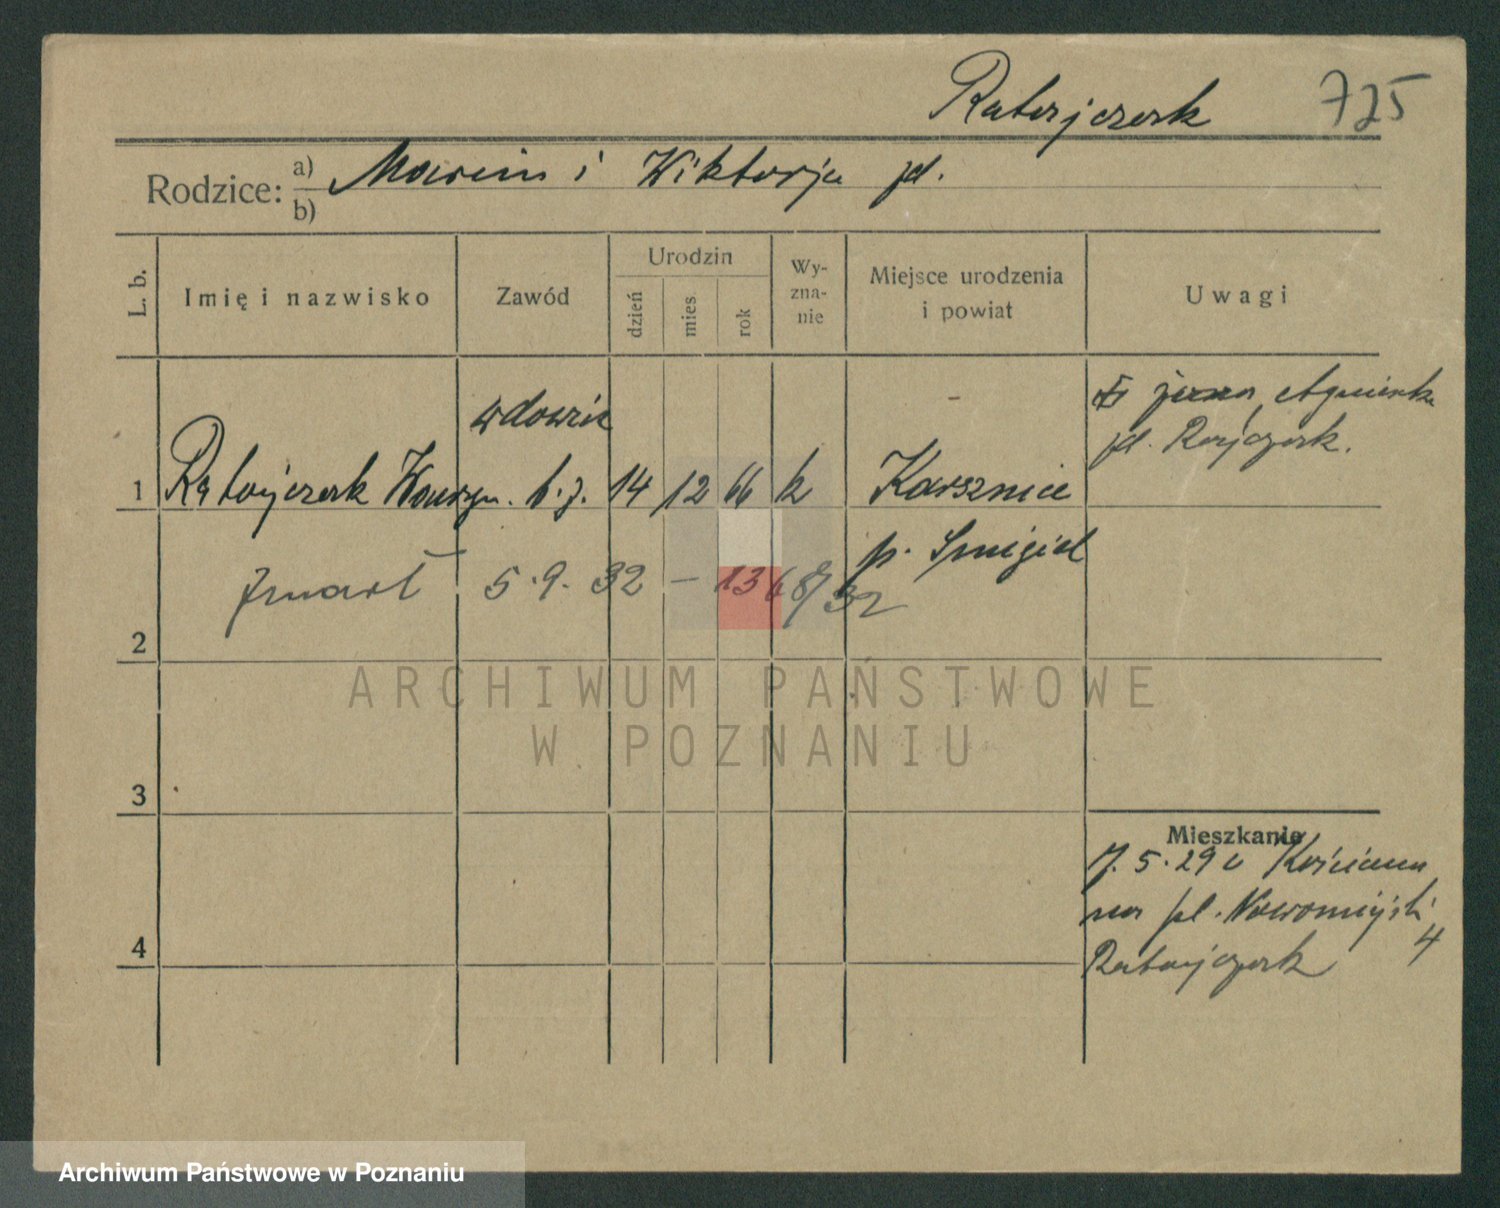 Ratajczak 725
Rodzice: a) Marcin i Wiktorja pł.
b)
L. b. Imię i nazwisko Zawód Urodzin dzień mies rok Wy-zna-nie Miejsce urodzenia i powiat Uwagi
wdowiec
ż. Agnieszka
1 Ratajczak Wawrzyn. b.z. 14 12 66 k Karsznice
p. Śmigiel
Zmarł 5.9.32 – 1368/32
2
ARCHIWUM PAŃSTWOWE
W POZNANIU
3
Mieszkanie
7.5.29 Kościana
na pl. Nowomiejski 4
Ratajczak
4
Archiwum Państwowe w Poznaniu